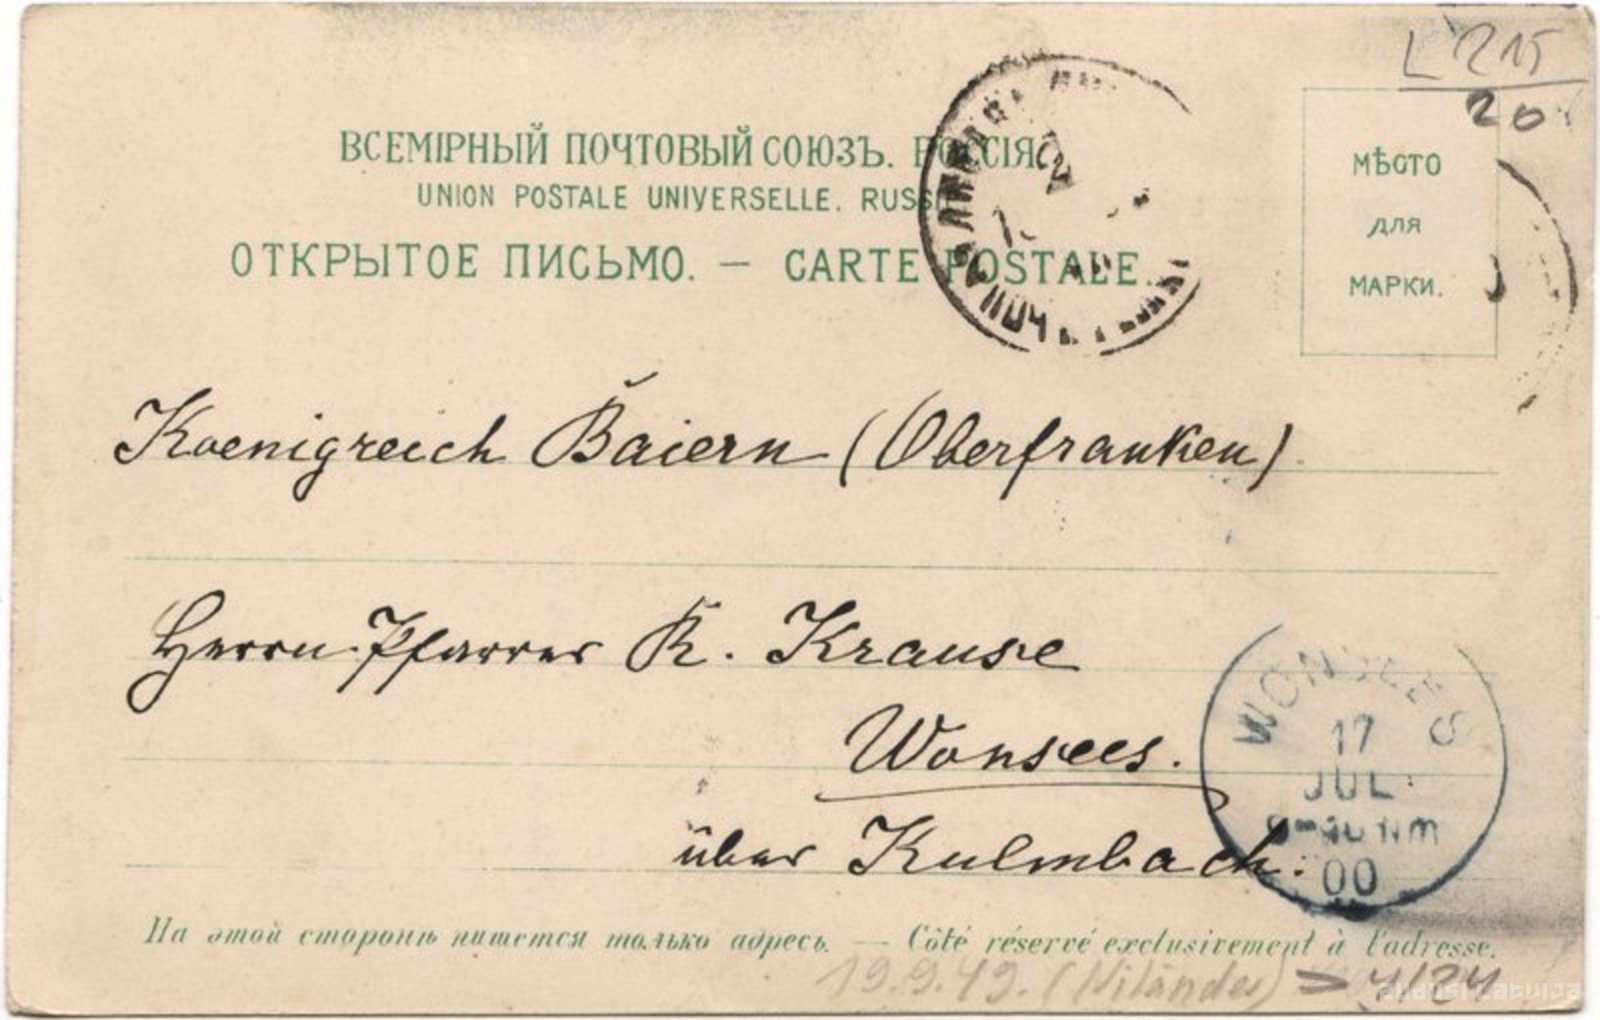 L 215
20
ВСЕМІРНЫЙ ПОЧТОВЫЙ СОЮЗЪ. РОССІЯ
UNION POSTALE UNIVERSELLE. RUSSIE
ОТКРЫТОЕ ПИСЬМО. — CARTE POSTALE.
МѢСТО
ДЛЯ
МАРКИ.
Koenigreich Baiern (Oberfranken)
Herrn Pfarrer K. Krause
Wonsees.
über Kulmbach.
WONSEES
17
JUL.
00
На этой сторонѣ пишется только адресъ. — Côté réservé exclusivement à l'adresse.
19.9.49.
zudusi Latvija